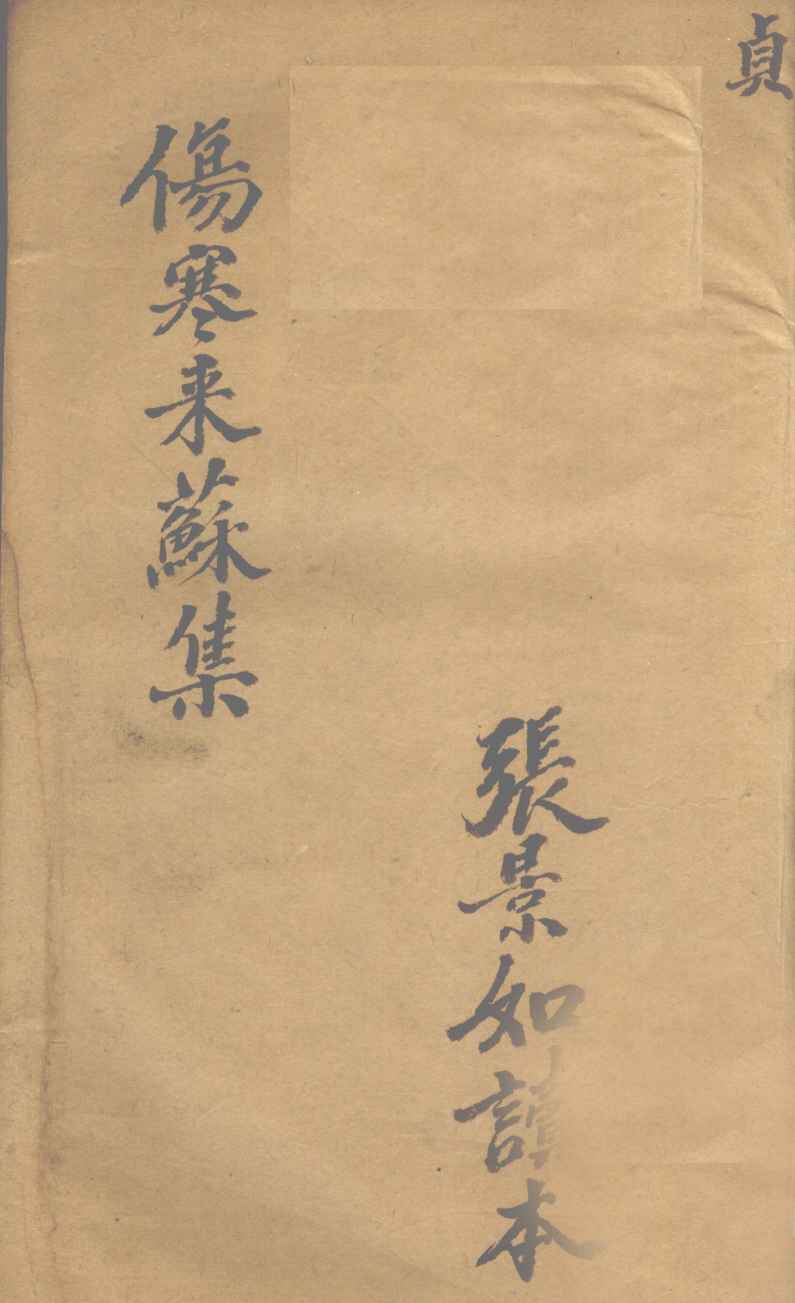 貞
張景如讀本
傷寒来蘇集